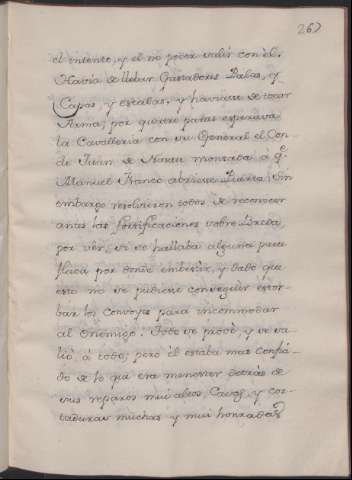 267
el intento, y el no poder valir con el.
Havia de llebar Gastadores Palas, y
Capas, y escalas, y haviase de tocar
Arma, por quatro partes esperava
la Cavalleria con su General el Con-
de Juan de Nasau montada á q.
Manuel Franco abriese Puerta, Sin
embargo resolvieron todos de reconocer
antes las fortificaciones sobre Breda,
por ver, si se hallaba alguna mas
flaca por donde embestir, y dado que
esto no se pudiese conseguir estor-
bar los convoyes para incommodar
al Enemigo. Todo se probó, y se sa-
lió á todo, pero él estaba mas confia-
do de lo que era menester detrás de
sus reparos mui altos, Cavas, y cor-
taduras muchas, y mui hondadas